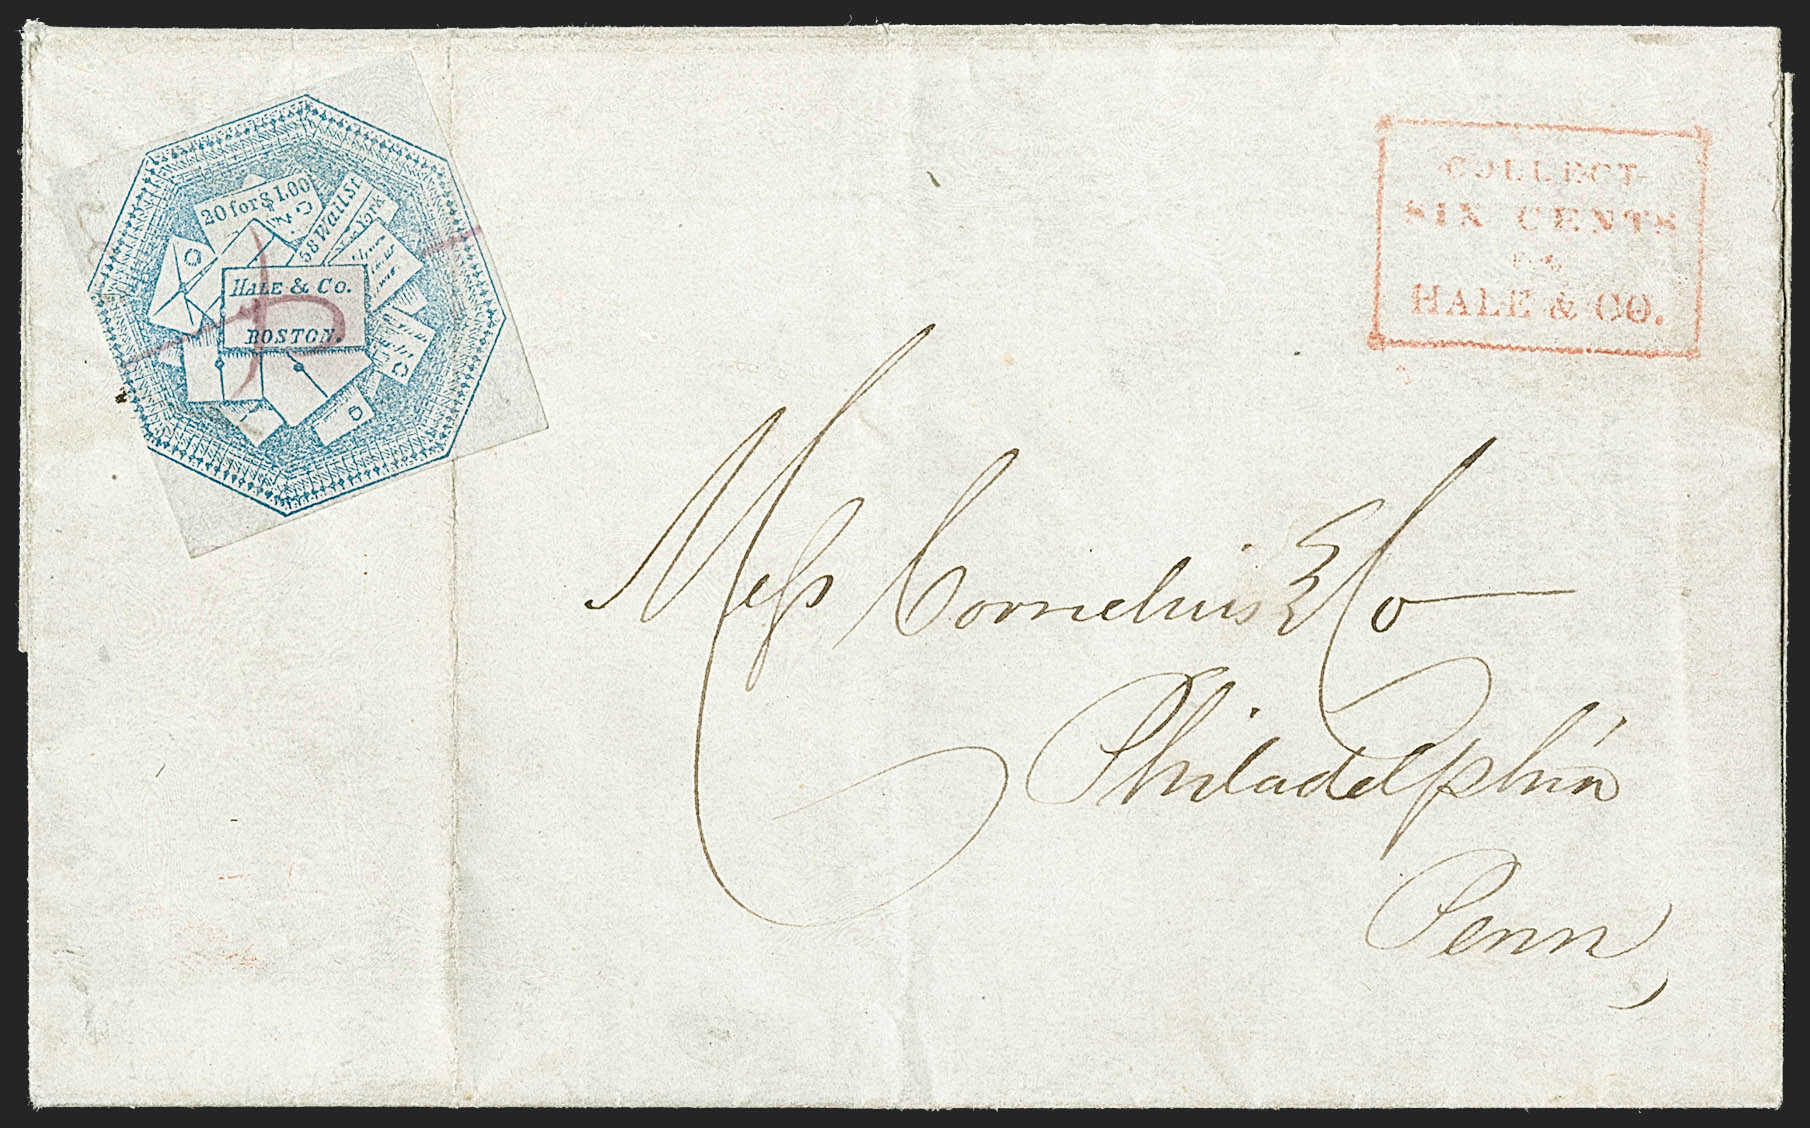 20 for $1.00
58 Wall St
New York
HALE & CO.
BOSTON.
COLLECT
SIX CENTS
for
HALE & CO.
Mess Cornelius & Co
Philadelphia
Penn,